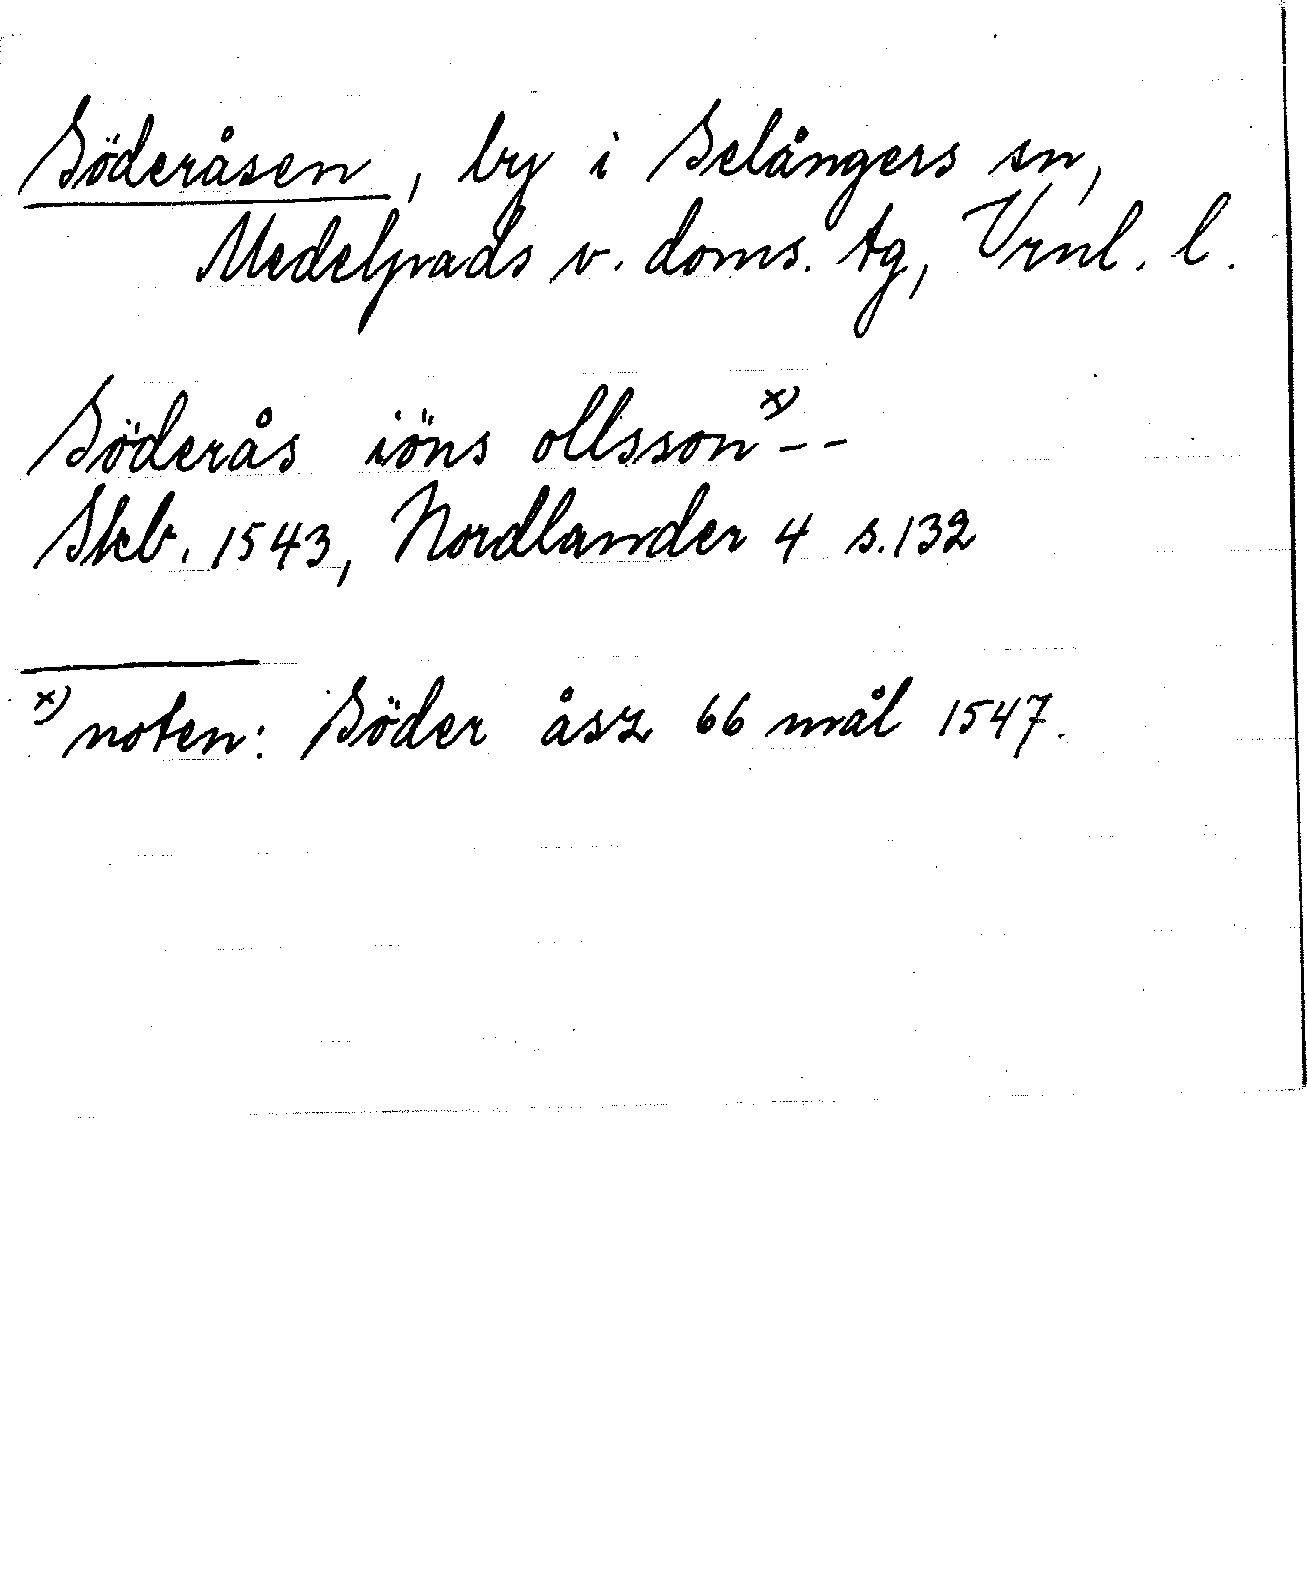 Söderåsen, by i Selångers sn,
Medelpads v. doms. tg, Vrnl. l.
Söderås iöns ollsson x) - -
Skb. 1543, Nordlander 4 s. 132
x) noten: Söder åsz 66 mål 1547.